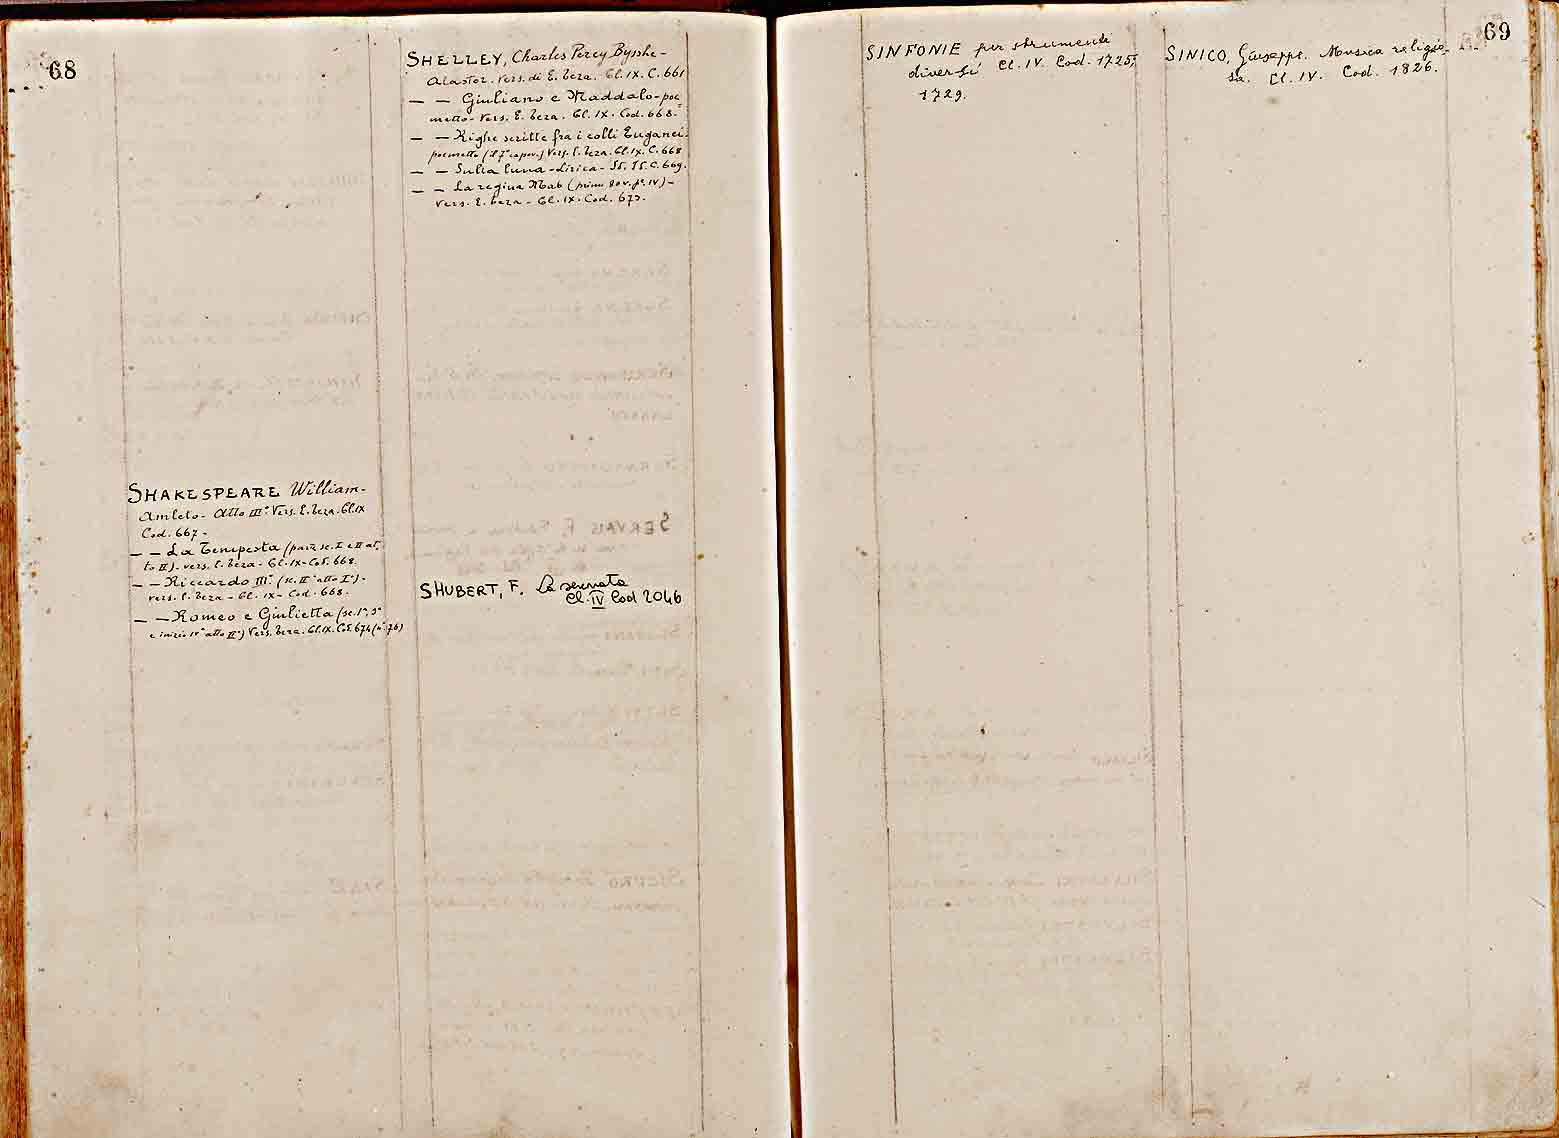 68
SHAKESPEARE William -
Amleto - Atto III° Vers. E. Teza. Cl. IX
Cod. 667 -
— — La Tempesta (parz. sc. I e II at-
to II). vers. E. Teza - Cl. IX - Cod. 668.
— — Riccardo III° (sc. II° atto I°) -
vers. E. Teza - Cl. IX - Cod. 668.
— — Romeo e Giulietta (sc. 1ª, 3ª
e inizio IV° atto II°) Vers. Teza. Cl. IX. Cod. 674 (n° 76)
SHELLEY, Charles Percy Bysshe -
Alastor. Vers. di E. Teza. Cl. IX. C. 661
— — Giuliano e Maddalo - poe-
metto - Vers. E. Teza. Cl. IX. Cod. 668.
— — Righe scritte fra i colli Euganei.
poemetto Vers. E. Teza. Cl. IX. C. 668
— — Sulla luna - Lirica - C. 669.
— — La regina Mab -
Vers. E. Teza - Cl. IX. Cod. 673.
SHUBERT, F. La serenata
Cl. IV Cod 2046
69
SINFONIE per strumenti
diversi Cl. IV. Cod. 1725,
1729.
SINICO, Giuseppe. Musica religio-
sa. Cl. IV. Cod. 1826.